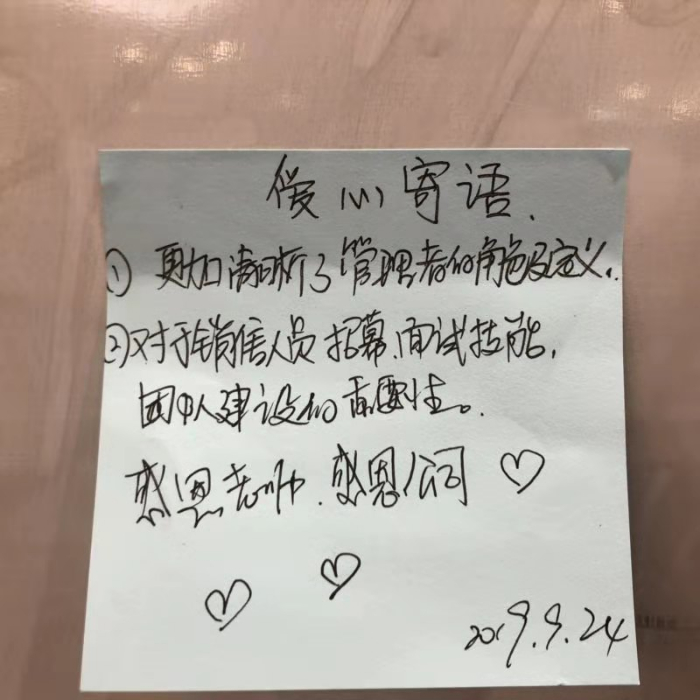 爱心寄语.
① 更加清晰了管理者的角色及定义.
②对于销售人员招募.面试技能,
团队建设的重要性。
感恩老师.感恩公司 ♡
♡ ♡
2019.9.24